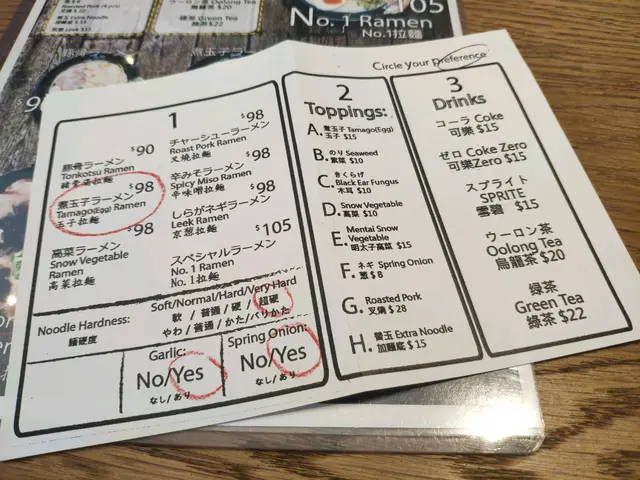 Roasted Pork (4 pcs)
Extra Noodle
ウーロン茶 Oolong Tea
烏龍茶 $20
綠茶 Green Tea
綠茶 $22
105
No. 1 Ramen
No.1拉麵
煮玉子ラー
Circle your preference
1
豚骨ラーメン $90
Tonkotsu Ramen
豬骨湯拉麵
煮玉子ラーメン $98
Tamago(Egg) Ramen
玉子拉麵
高菜ラーメン $98
Snow Vegetable
Ramen
高菜拉麵
チャーシューラーメン $98
Roast Pork Ramen
叉燒拉麵
辛みそラーメン $98
Spicy Miso Ramen
辛味噌拉麵
しらがネギラーメン $98
Leek Ramen
京葱拉麵
スペシャルラーメン $105
No. 1 Ramen
No.1拉麵
Noodle Hardness:
麵硬度
Soft/Normal/Hard/Very Hard
軟 / 普通 / 硬 / 超硬
やわ / 普通 / かた/ バリかた
Garlic:
No/Yes
なし/あり
Spring Onion:
No/Yes
なし/あり
2
Toppings:
A. 煮玉子 Tamago(Egg)
玉子 $15
B. のり Seaweed
紫菜 $10
C. きくらげ
Black Ear Fungus
木耳 $10
D. Snow Vegetable
高菜 $10
E. Mentai Snow
Vegetable
明太子高菜 $15
F. ネギ Spring Onion
葱 $8
G. Roasted Pork
叉燒 $28
H. 替玉 Extra Noodle
加麵底 $15
3
Drinks
コーラ Coke
可樂 $15
ゼロ Coke Zero
可樂Zero $15
スプライト
SPRITE
雪碧 $15
ウーロン茶
Oolong Tea
烏龍茶 $20
緑茶
Green Tea
綠茶 $22